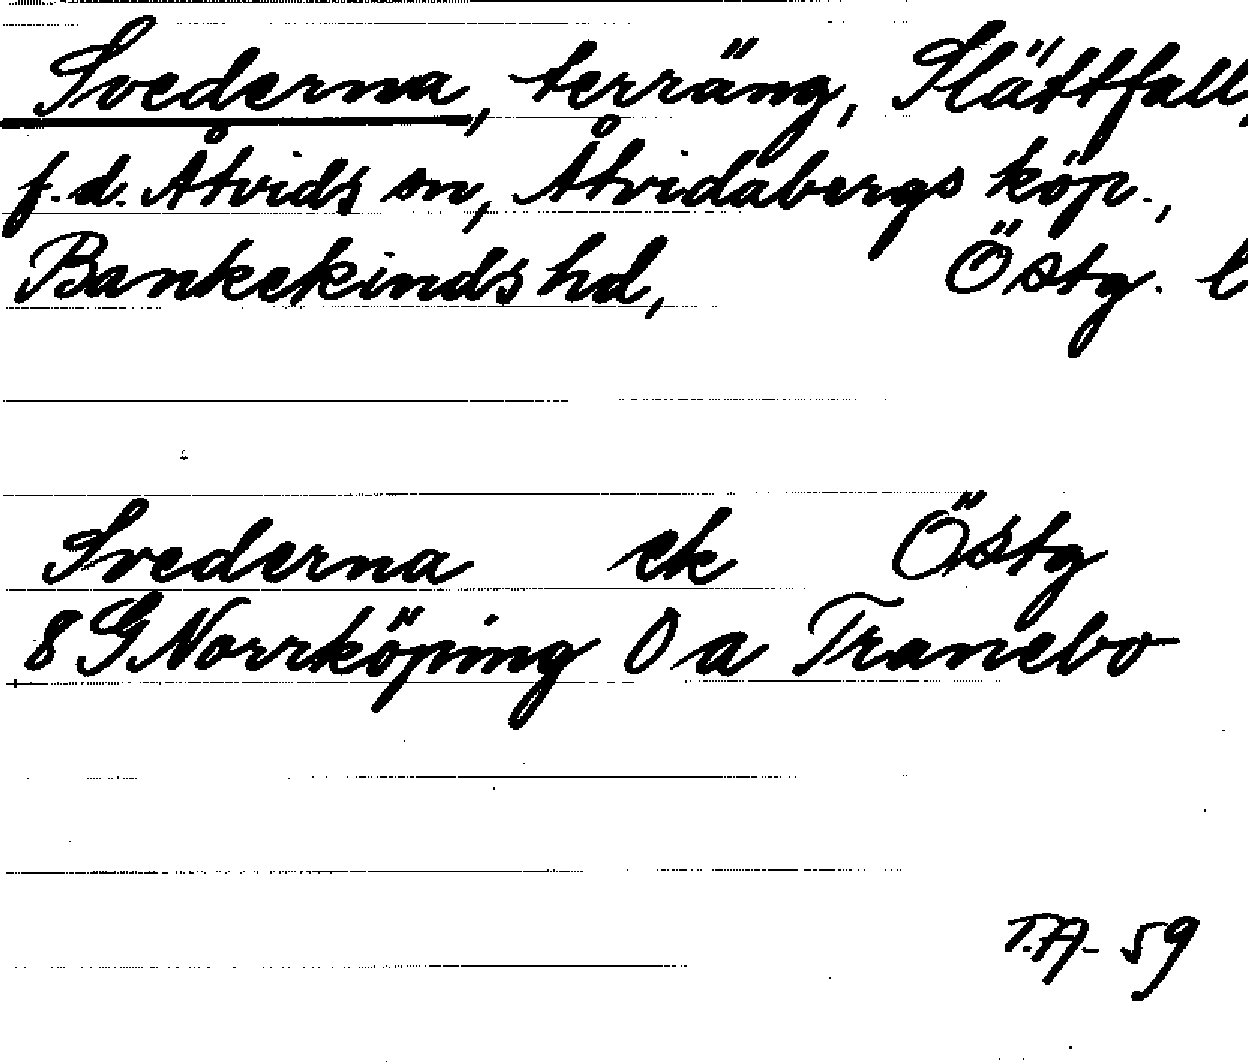 Svederna, terräng, Slättfall,
f.d. Åtvids sn, Åtvidabergs köp.,
Bankekinds hd, Östg. l
Svederna ek Östg
8 G Norrköping 0 a Tranebo
T.A- 59